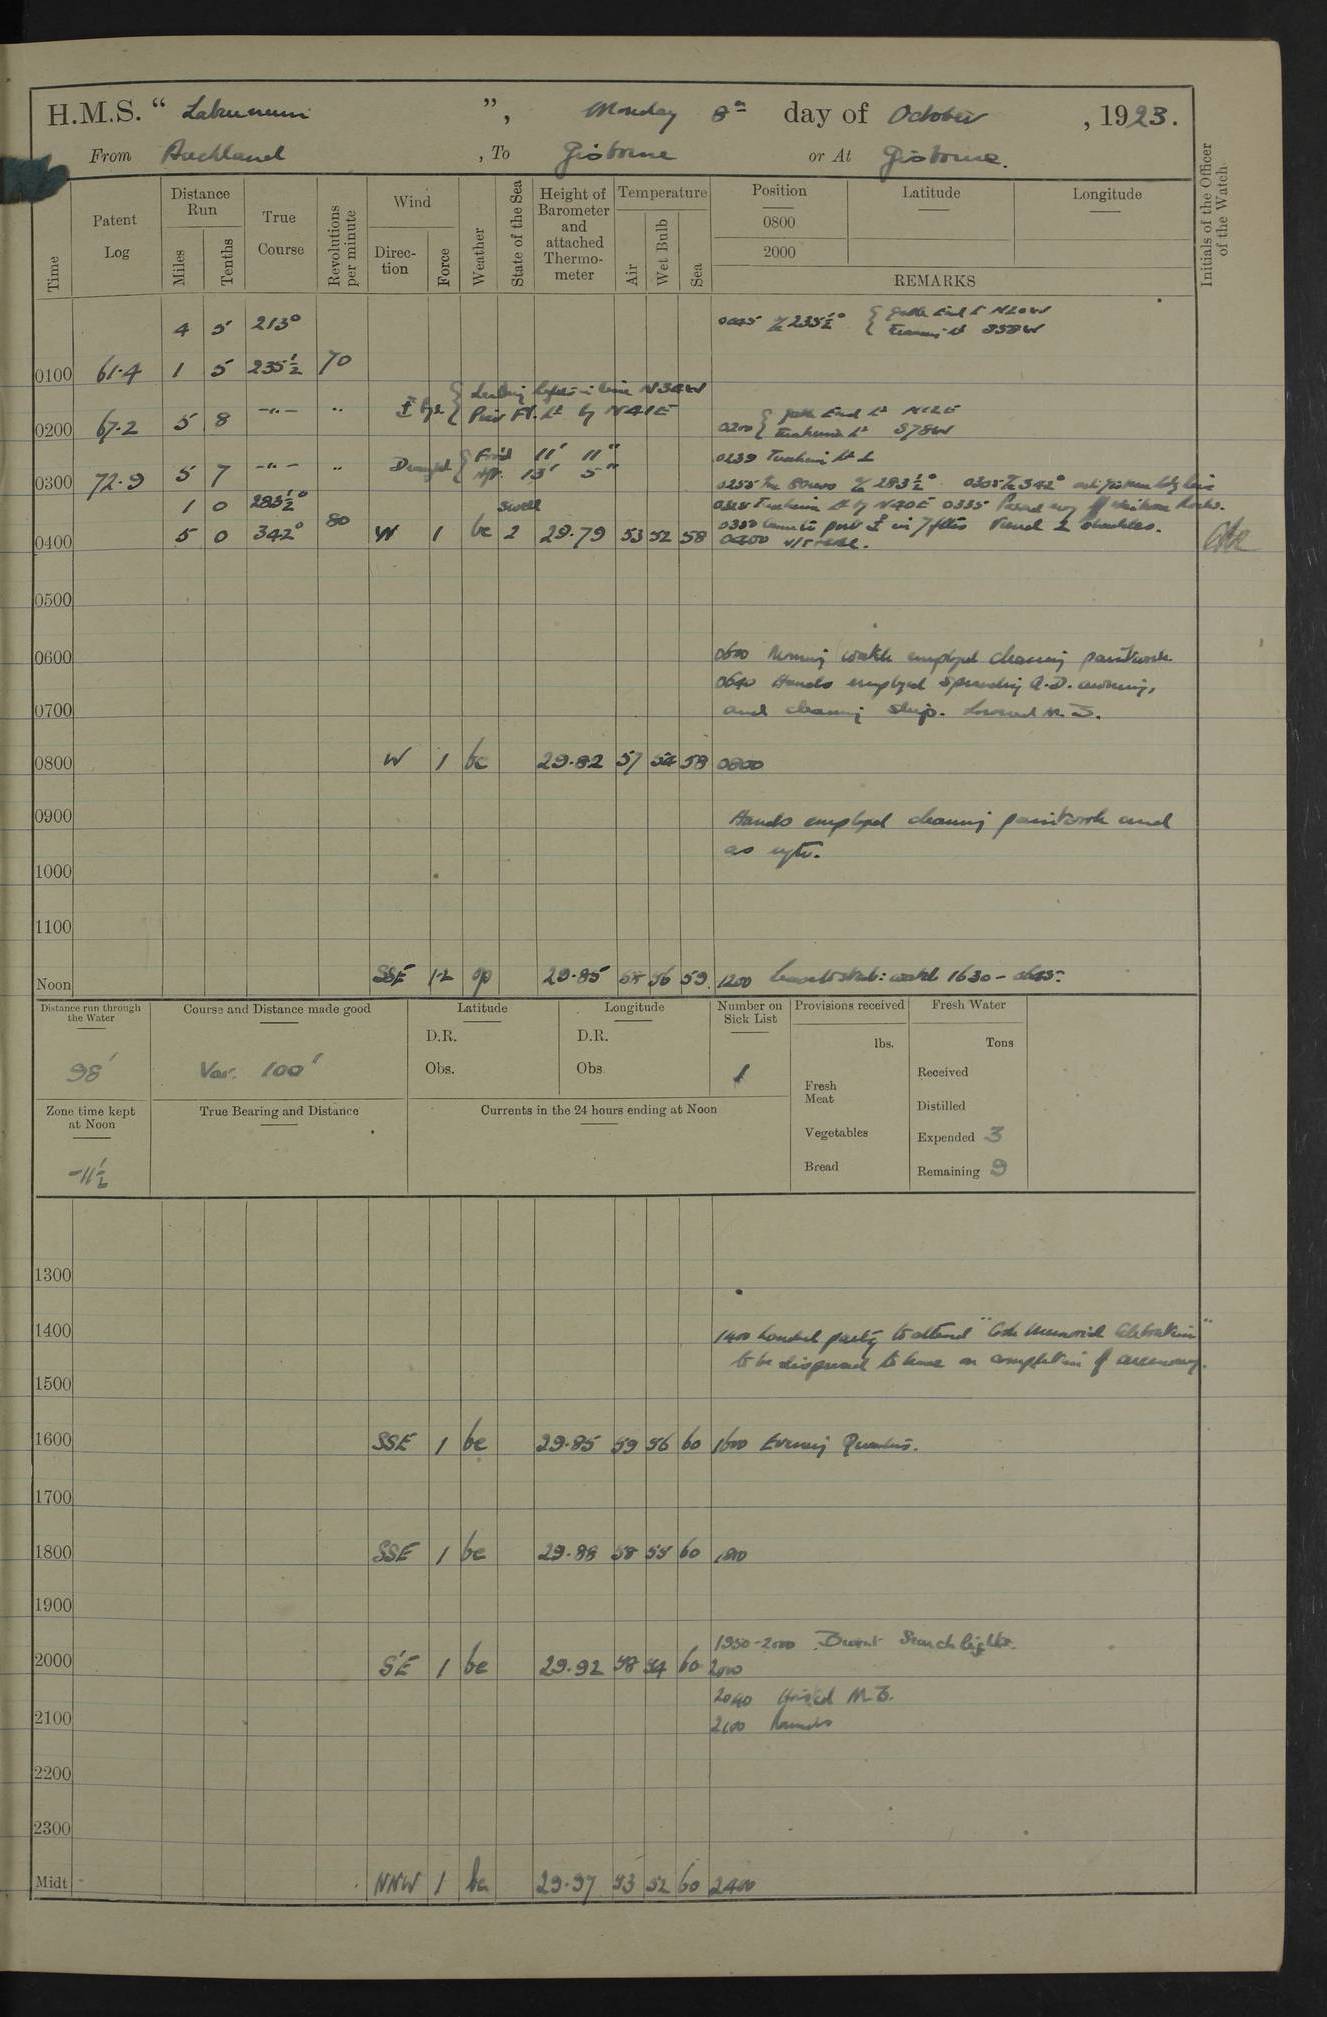 H.M.S. " Laburnum ", Monday 8th day of October, 1923.
From Auckland, To Gisborne or At Gisborne.
Time
Patent Log
Distance Run
Miles
Tenths
True Course
Revolutions per minute
Wind
Direction
Force
Weather
State of the Sea
Height of Barometer and attached Thermometer
Temperature
Air
Wet Bulb
Sea
Position
0800
2000
Latitude
Longitude
REMARKS
Initials of the Officer of the Watch
4 5 213° 0045 235½° { Gable End Lt N20W
S58W
0100 61.4 1 5 235½ 70
Leading Lights in line N34W
0200 67.2 5 8 -"- " Pier Lt by N41E 0200 { Gable End Lt N12E
Tuahine Lt S78W
0239 Tuahine Lt
0300 72.9 5 7 -"- " Draught { For'd 11' 11"
Aft 13' 5"
0255 283½° 0305 342°
1 0 283½° Tuahine Lt by N40E 0335
swell
0400 5 0 342° 80 W 1 bc 2 29.79 53 52 58 Came to port in 7 fms Veered 2 shackles.
0400
0500
0600 0600 Morning watch employed cleaning paintwork.
0640 Hands employed spreading Q.D. awning,
0700 and cleaning ship. Lowered M.B.
0800 W 1 bc 29.82 57 54 58 0800
0900 Hands employed cleaning paintwork and
as reqte.
1000
1100
Noon SSE 1-2 op 29.85 58 56 59 1200 Leave to starb: watch 1630 - 0645.
Distance run through the Water
98'
Course and Distance made good
Var. 100'
Latitude
D.R.
Obs.
Longitude
D.R.
Obs
Number on Sick List
1
Provisions received
lbs.
Fresh Meat
Vegetables
Bread
Fresh Water
Tons
Received
Distilled
Expended 3
Remaining 9
Zone time kept at Noon
-11½
True Bearing and Distance
Currents in the 24 hours ending at Noon
1300
1400 1400 Landed party to attend "Cook Memorial Celebration"
to be dispersed to leave on completion of ceremony.
1500
1600 SSE 1 bc 29.85 59 56 60 1600 Evening Quarters.
1700
1800 SSE 1 bc 29.88 58 55 60 1800
1900
1950-2000 Burnt Searchlights.
2000 S'E 1 bc 29.92 58 54 60 2000
2040 Hoisted M.B.
2100 2100 Rounds
2200
2300
Midt NNW 1 bc 29.97 53 52 60 2400